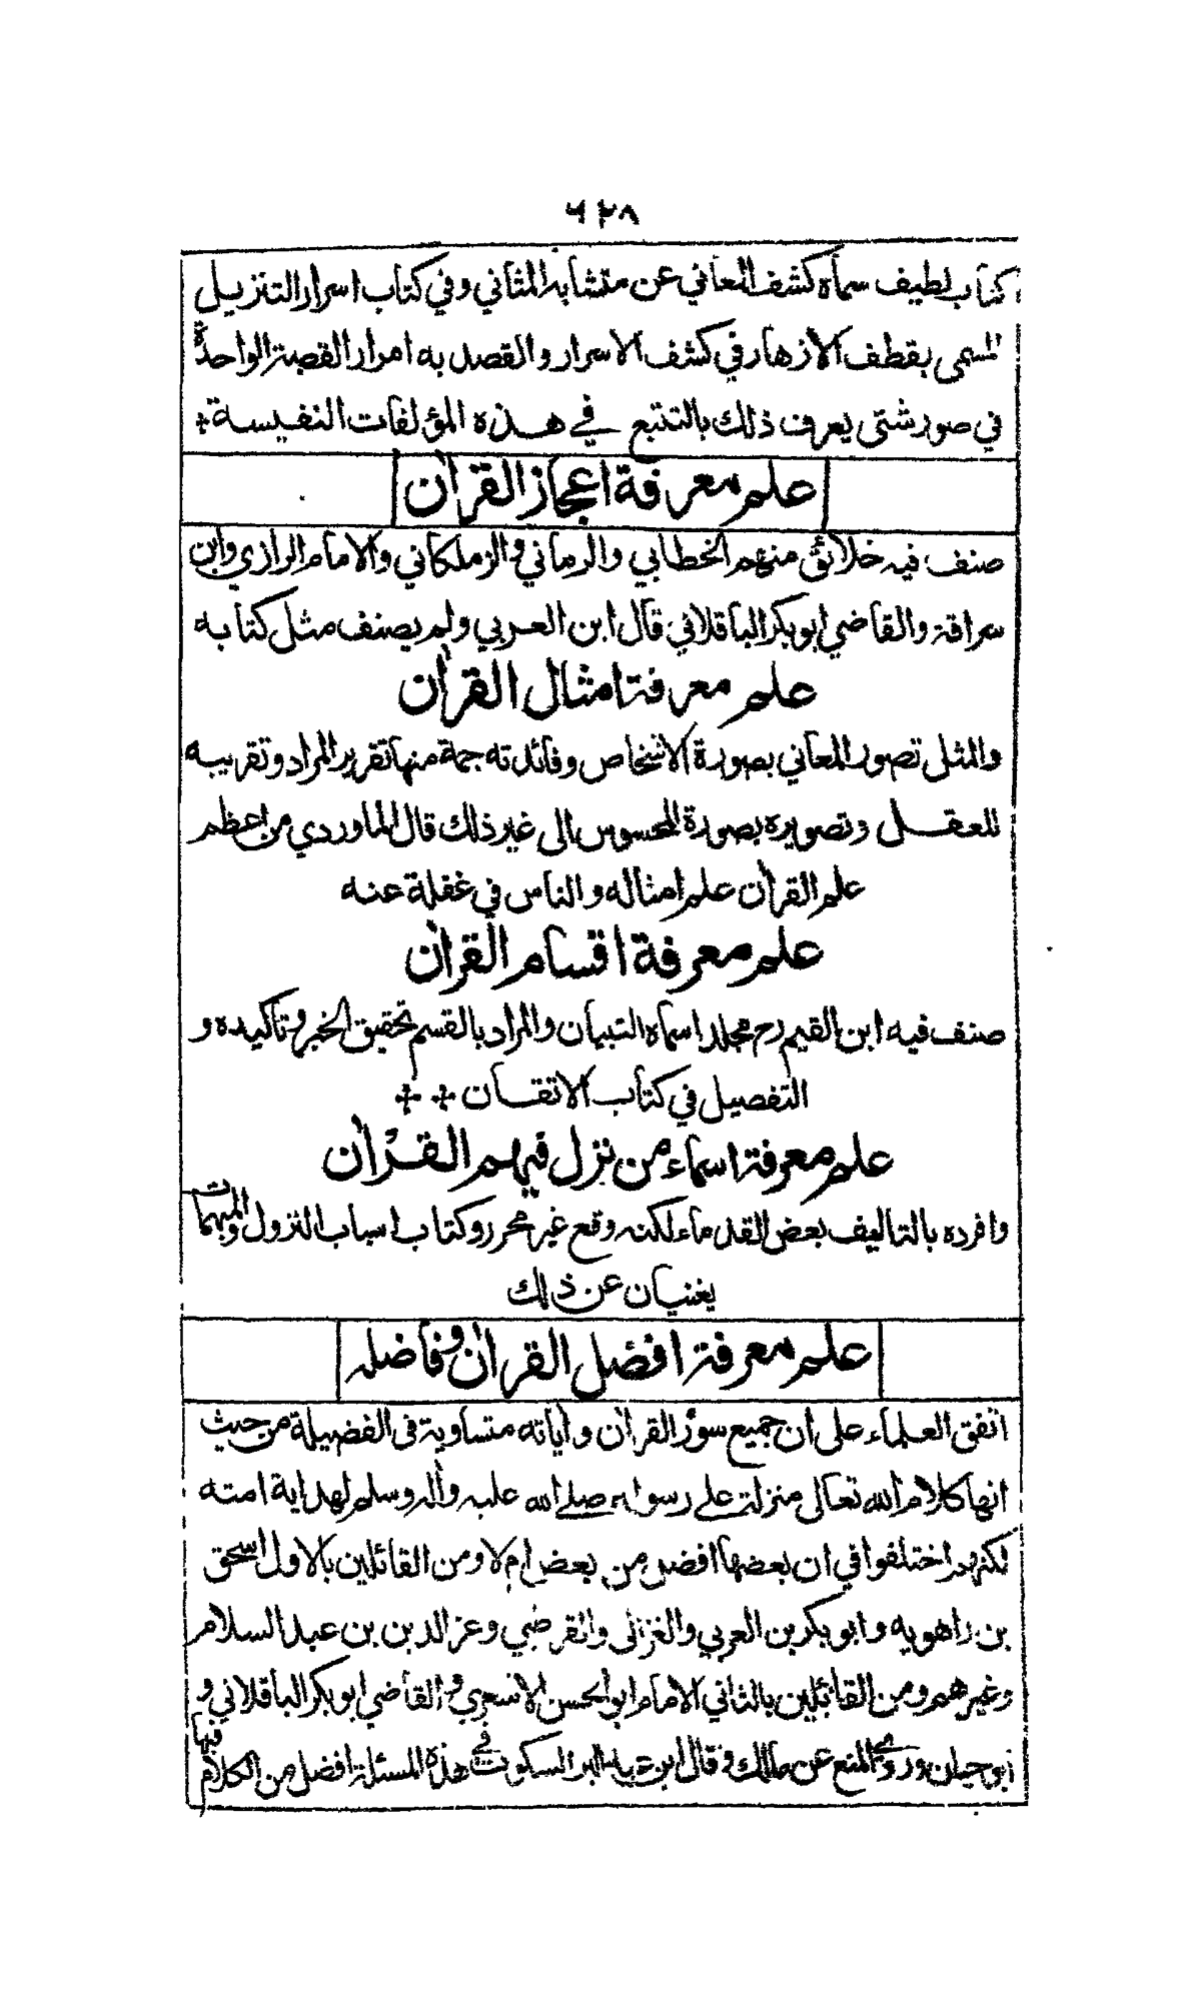 ٦٢٨
كتاب لطيف سماه كشف المعاني عن متشابه المثاني وفي كتاب اسرار التنزيل
المسمى بقطف الازهار في كشف الاسرار والقصد به امرار القصة الواحدة
في صور شتى يعرف ذلك بالتتبع في هذه المؤلفات النفيسة
علم معرفة اعجاز القرآن
صنف فيه خلائق منهم الخطابي والرماني والزملكاني والامام الرازي وابن
سراقة والقاضي ابو بكر الباقلاني قال ابن العربي ولم يصنف مثل كتابه
علم معرفة امثال القرآن
والمثل تصور المعاني بصورة الاشخاص وفائدته جمة منها تقرير المراد وتقريبه
للعقل وتصويره بصورة المحسوس الى غير ذلك قال الماوردي من اعظم
علم القرآن علم امثاله والناس في غفلة عنه
علم معرفة اقسام القرآن
صنف فيه ابن القيم رح مجلدا سماه التبيان والمراد بالقسم تحقيق الخبر وتاكيده و
التفصيل في كتاب الاتقان
علم معرفة اسماء من نزل فيهم القرآن
وافرده بالتاليف بعض القدماء لكنه وقع غير محرر وكتاب اسباب النزول والمبهمات
يغنيان عن ذلك
علم معرفة افضل القرآن وفاضله
اتفق العلماء على ان جميع سور القرآن وآياته متساوية في الفضيلة من حيث
انها كلام الله تعالى منزلة على رسوله صلى الله عليه وآله وسلم لهداية امته
لكنهم اختلفوا في ان بعضها افضل من بعض ام لا ومن القائلين بالاول اسحق
بن راهويه وابو بكر بن العربي والغزالي والقرطبي وعز الدين بن عبد السلام
وغيرهم ومن القائلين بالثاني الامام ابو الحسن الاشعري والقاضي ابو بكر الباقلاني و
ابو حيان وروي المنع عن مالك وقال ابن عبد البر السكوت في هذه المسئلة افضل من الكلام فيها